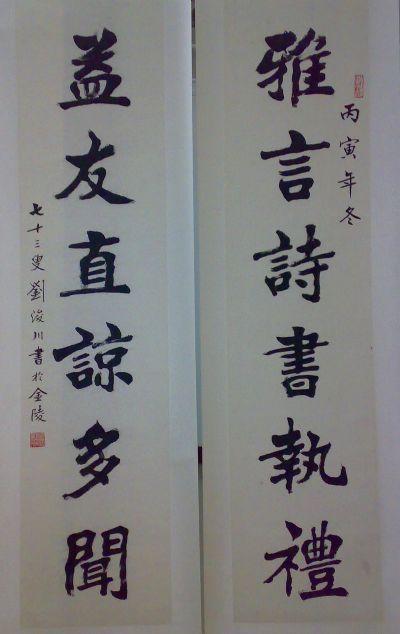 雅言詩書執禮
丙寅年冬
益友直諒多聞
七十三叟劉俊川書於金陵